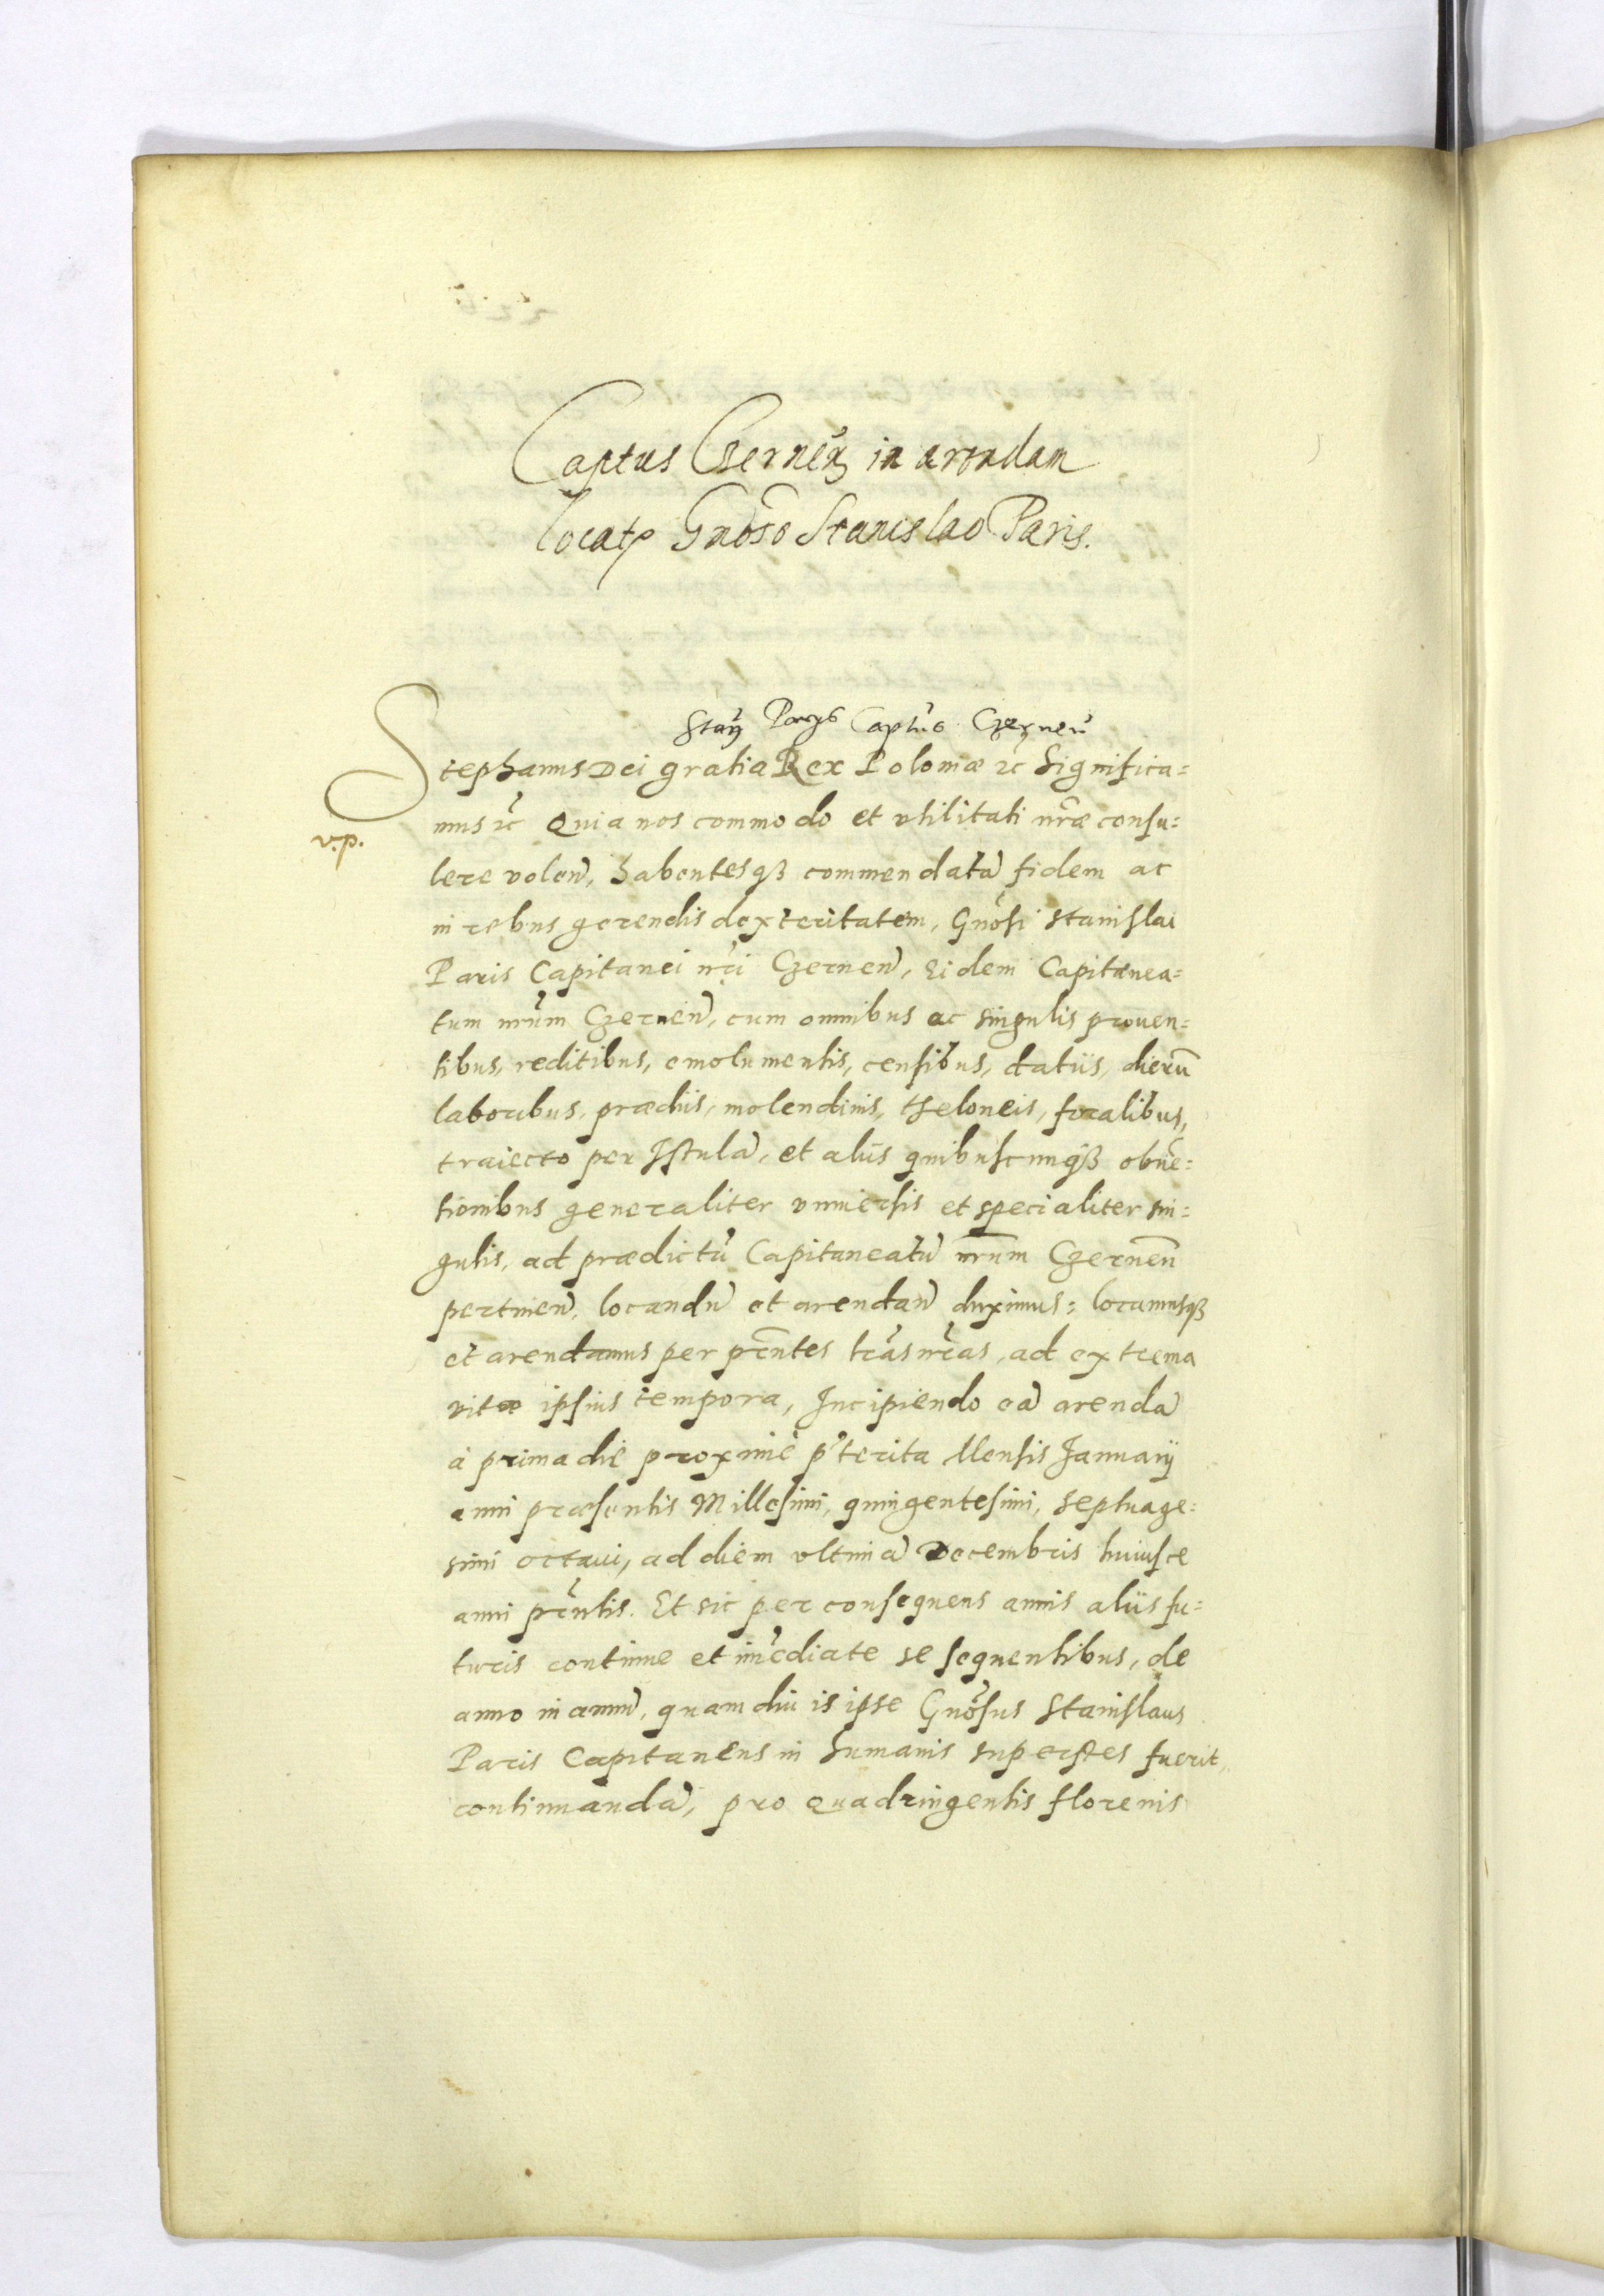 Captus Czernen̄ in arendam
locat͛ Gnōso Stanislao Paris.
Captūs Czernen̄
Stephanus Dei gratia Rex Poloniæ ꝛc̄ Significa=
mus ꝛc̄ Quia nos commodo et vtilitati nr̄æ consu=
v.p.
lere volen̄, habentesqꝫ commendatā fidem ac
in rebus gerendis dexteritatem, Gnōsi Stanislai
Paris Capitanei nr̄i Czernen̄, Eidem Capitanea=
tum nr̄um Czernen̄, cum omnibus ac singulis prouen=
tibus, reditibus, emolumentis, censibus, datiis, dierū
laboribus, prædiis, molendinis, theloneis, foralibus,
traiecto per Istulā, et aliis quibuscunqꝫ obuē=
tionibus generaliter vniuersis et specialiter sin=
gulis, ad prædictū Capitaneatū nr̄um Czernen̄
pertinen̄, locandū et arendan̄ duximus: locamusqꝫ
et arendamus per prn̄tes lr̄as nr̄as, ad extrema
vitæ ipsius tempora, Incipiendo eā arendā
à prima die proximè p̄terita Mensis Januarij
anni præsentis Millesimi, quingentesimi, septuage=
simi octaui, ad diem vltimā Decembris huiusce
anni prn̄tis. Et sic per consequens annis aliis fu=
turis continue et im̄ediate se sequentibus, de
anno in annū, quamdiu is ipse Gnōsus Stanislaus
Paris Capitaneus in humanis superstes fuerit,
continuandā, pro quadringentis florenis